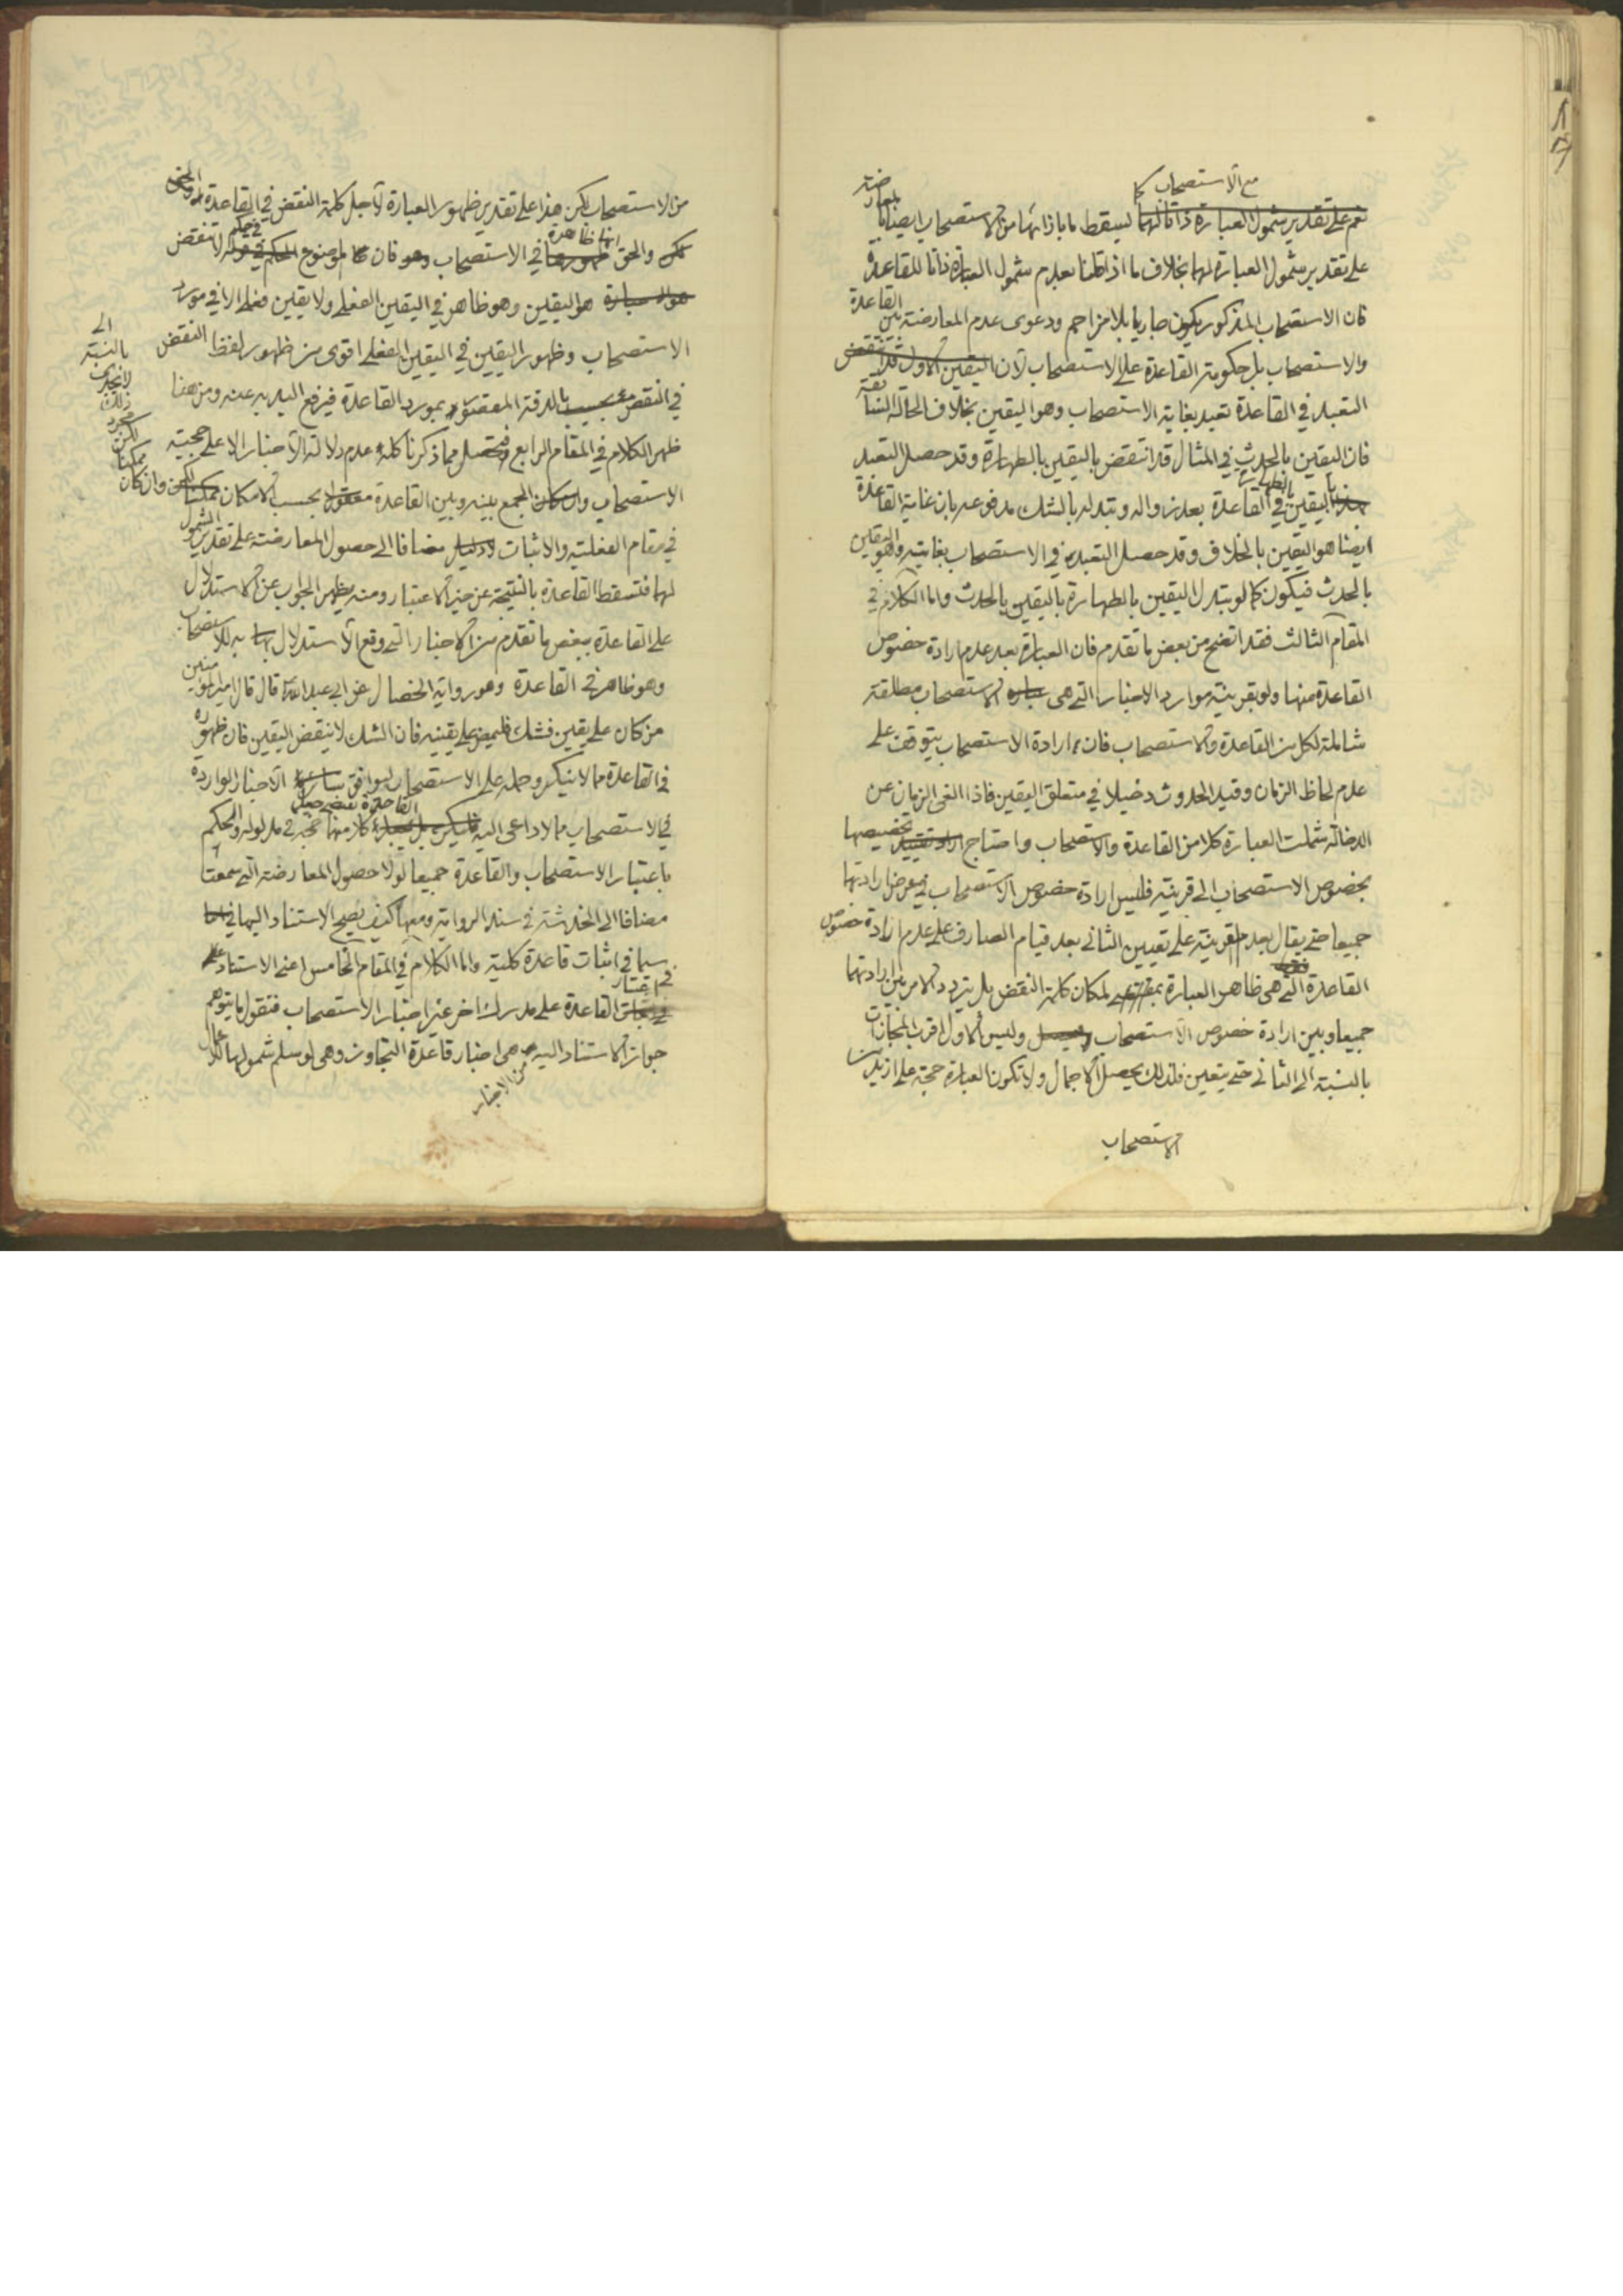 مع الاستصحاب كما
نعم على تقدير شمول العبارة ذاتا لهما ليسقط ما بازائها من الاستصحاب ايضا بالمعارضة
على تقدير شمول العبارة لهما بخلاف ما اذا قلنا بعدم شمول العبارة ذاتا للقاعدة
فان الاستصحاب المذكور يكون جاريا بلا مزاحم ودعوى عدم المعارضة بين القاعدة
والاستصحاب بل حكومة القاعدة على الاستصحاب لان اليقين الاول قد انتقض
التعبد في القاعدة تعبد بغاية الاستصحاب وهو اليقين بخلاف الحالة السابقة
فان اليقين بالحدث في المثال قد انتقض باليقين بالطهارة وقد حصل التعبد
باليقين بالطهارة في القاعدة بعد زواله وتبدله بالشك مدفوعة بان غاية القاعدة
ايضا هو اليقين بالخلاف وقد حصل التعبد به في الاستصحاب بغايته وهو اليقين
بالحدث فيكون كما لو تبدل اليقين بالطهارة باليقين بالحدث واما الكلام في
المقام الثالث فقد اتضح من بعض ما تقدم فان العبارة بعد عدم ارادة خصوص
القاعدة منها ولو بقرينة موارد الاخبار التي هي الاستصحاب مطلقة
شاملة لكل من القاعدة والاستصحاب فان ارادة الاستصحاب يتوقف على
عدم لحاظ الزمان وقيد الحدوث دخيلا في متعلق اليقين فاذا الغى الزمان عن
الدخالة شملت العبارة كلا من القاعدة والاستصحاب واحتاج تخصيصها
بخصوص الاستصحاب الى قرينة فليس ارادة خصوص الاستصحاب في عرض ارادتها
جميعا حتى يقال بعدم القرينة على تعيين الثاني بعد قيام الصارف على عدم ارادة خصوص
القاعدة التي هي ظاهر العبارة لمكان كلمة النقض بل يتردد الامر بين ارادتهما
جميعا وبين ارادة خصوص الاستصحاب وليس الاول اقرب المجازات
بالنسبة الى الثاني حتى يتعين فلذلك يحصل الاجمال ولا تكون العبارة حجة على ازيد من
الاستصحاب
من الاستصحاب لكن هذا على تقدير ظهور العبارة لاجل كلمة النقض في القاعدة
والحق انها ظاهرة في الاستصحاب فان الموضوع في حكم لا تنقض
هو اليقين وهو ظاهر في اليقين الفعلي ولا يقين فعلا الا في مورد
الاستصحاب وظهور اليقين في اليقين الفعلي اقوى من ظهور لفظ النقض
في النقض بالدقة المعقود بمورد القاعدة فيرفع اليد به عنه ومن هنا
ظهر الكلام في المقام الرابع فتحصل مما ذكرنا كله عدم دلالة الاخبار الا على حجية
الاستصحاب وان كان الجمع بينه وبين القاعدة بحسب الامكان ممكنا
في مقام الفعلية والاثبات مضافا الى حصول المعارضة على تقدير الشمول
لهما فتسقط القاعدة بالنتيجة عن حيز الاعتبار ومنه يظهر الجواب عن الاستدلال
على القاعدة ببعض ما تقدم من الاخبار التي وقع الاستدلال به للاستصحاب
وهو ظاهر في القاعدة وهو رواية الخصال عن ابي عبد الله قال قال امير المؤمنين
من كان على يقين فشك فليمض على يقينه فان الشك لا ينقض اليقين فان ظهوره
في القاعدة مما لا ينكر وحمله على الاستصحاب ليوافق سائر الاخبار الواردة
في الاستصحاب مما لا داعي اليه كلا منهما حجة في مدلوله والحكم
باعتبار الاستصحاب والقاعدة جميعا لولا حصول المعارضة التي سمعت
مضافا الى الخدشة في سند الرواية ومعها كيف يصح الاستناد اليها في
سيما في اثبات قاعدة كلية واما الكلام في المقام الخامس اعني الاستناد
في اعتبار القاعدة على مدرك اخر غير اخبار الاستصحاب فنقول ما يتوهم
جواز الاستناد اليه من الاخبار هي اخبار قاعدة التجاوز وهي لو سلم شمولها